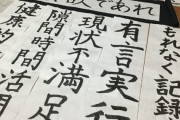 であれ
もれなく記録
有言実行
現状不満足
隙間時間活用
健康的